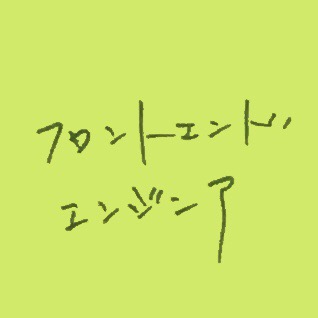 フロントエンド
エンジンア